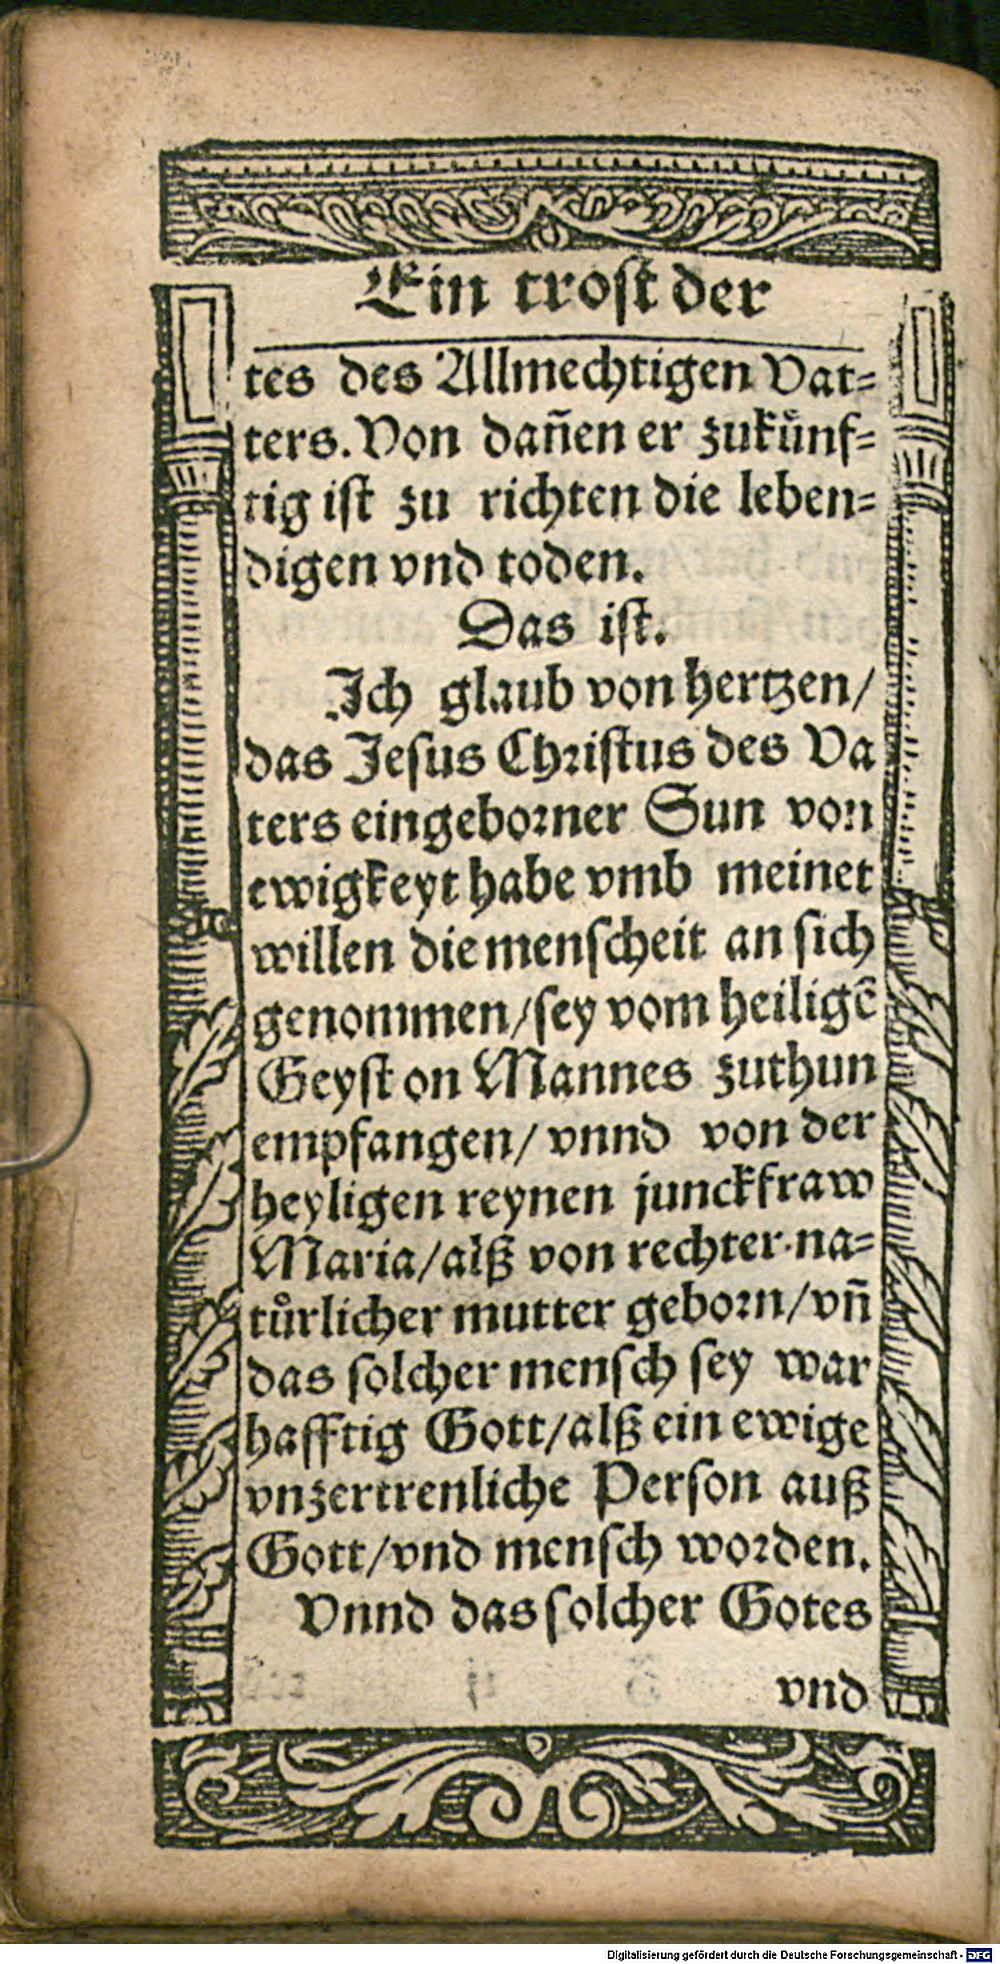 Ein trost der
tes des Allmechtigen Vat=
ters. Von dañen er zukuͤnf=
tig ist zu richten die leben=
digen vnd toden.
Das ist.
Ich glaub von hertzen/
das Jesus Christus des Va
ters eingeborner Sun von
ewigkeyt habe vmb meinet
willen die menscheit an sich
genommen/sey vom heiligē
Geyst on Mannes zuthun
empfangen/ vnnd von der
heyligen reynen junckfraw
Maria/alß von rechter na=
tuͤrlicher mutter geborn/vñ
das solcher mensch sey war
hafftig Gott/alß ein ewige
vnzertrenliche Person auß
Gott/vnd mensch worden.
Vnnd das solcher Gotes
vnd
Digitalisierung gefördert durch die Deutsche Forschungsgemeinschaft - DFG